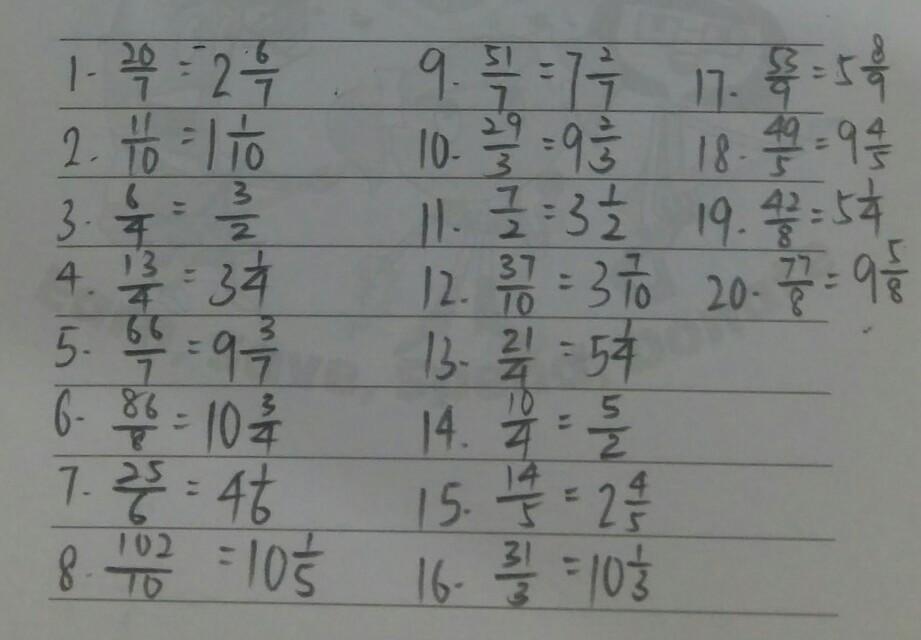 1. 20/7 = 2 6/7
2. 11/10 = 1 1/10
3. 6/4 = 3/2
4. 13/4 = 3 1/4
5. 66/7 = 9 3/7
6. 86/8 = 10 3/4
7. 25/6 = 4 1/6
8. 102/10 = 10 1/5
9. 51/7 = 7 2/7
10. 29/3 = 9 2/3
11. 7/2 = 3 1/2
12. 37/10 = 3 7/10
13. 21/4 = 5 1/4
14. 10/4 = 5/2
15. 14/5 = 2 4/5
16. 31/3 = 10 1/3
17. 53/9 = 5 8/9
18. 49/5 = 9 4/5
19. 42/8 = 5 1/4
20. 77/8 = 9 5/8